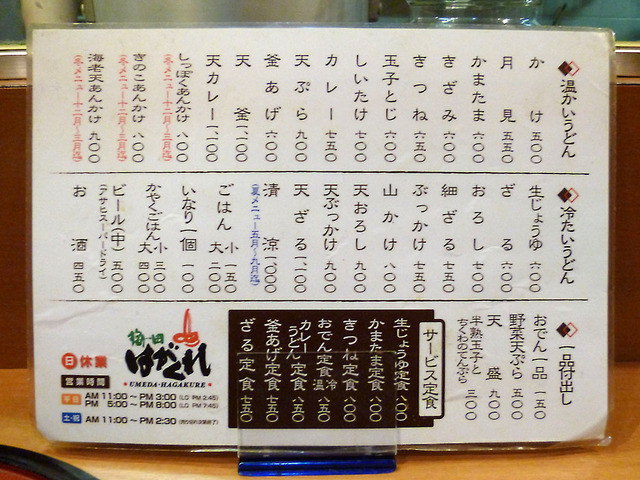 温かいうどん
かけ 五〇〇
月見 五五〇
かまたま 六〇〇
きざみ 六〇〇
きつね 六五〇
玉子とじ 六〇〇
しいたけ 七〇〇
カレー 七五〇
天ぷら 九〇〇
釜あげ 六〇〇
天釜 一、一〇〇
天カレー 一、二〇〇
しっぽくあんかけ 八〇〇
(冬メニュー十二月〜三月迄)
きのこあんかけ 八〇〇
(冬メニュー十二月〜三月迄)
海老天あんかけ 九〇〇
(冬メニュー十二月〜三月迄)
冷たいうどん
生じょうゆ 六〇〇
ざる 六〇〇
おろし 七〇〇
細ざる 七五〇
ぶっかけ 七五〇
山かけ 八〇〇
天おろし 九〇〇
天ぶっかけ 九〇〇
天ざる 一、一〇〇
清涼 一、〇〇〇
(夏メニュー五月〜九月迄)
ごはん 小 一五〇
大 二〇〇
いなり一個 一〇〇
かやくごはん 小 三〇〇
大 四〇〇
ビール(中) 五〇〇
(アサヒスーパードライ)
お酒 四五〇
一品付出し
おでん一品 一五〇
野菜天ぷら 五〇〇
天盛 九〇〇
半熟玉子と
ちくわのてんぷら 三〇〇
サービス定食
生じょうゆ定食 八〇〇
かまたま定食 八〇〇
きつね定食 八〇〇
おでん定食 冷温 八五〇
カレーうどん定食 八五〇
釜あげ定食 七五〇
ざる定食 七五〇
梅田
はがくれ
・UMEDA-HAGAKURE・
日 休業
営業時間
平日 AM 11:00 〜 PM 3:00 (LO PM 2:45)
PM 5:00 〜 PM 8:00 (LO PM 7:45)
土・祝 AM 11:00 〜 PM 2:30 (売り切れ次第終了)